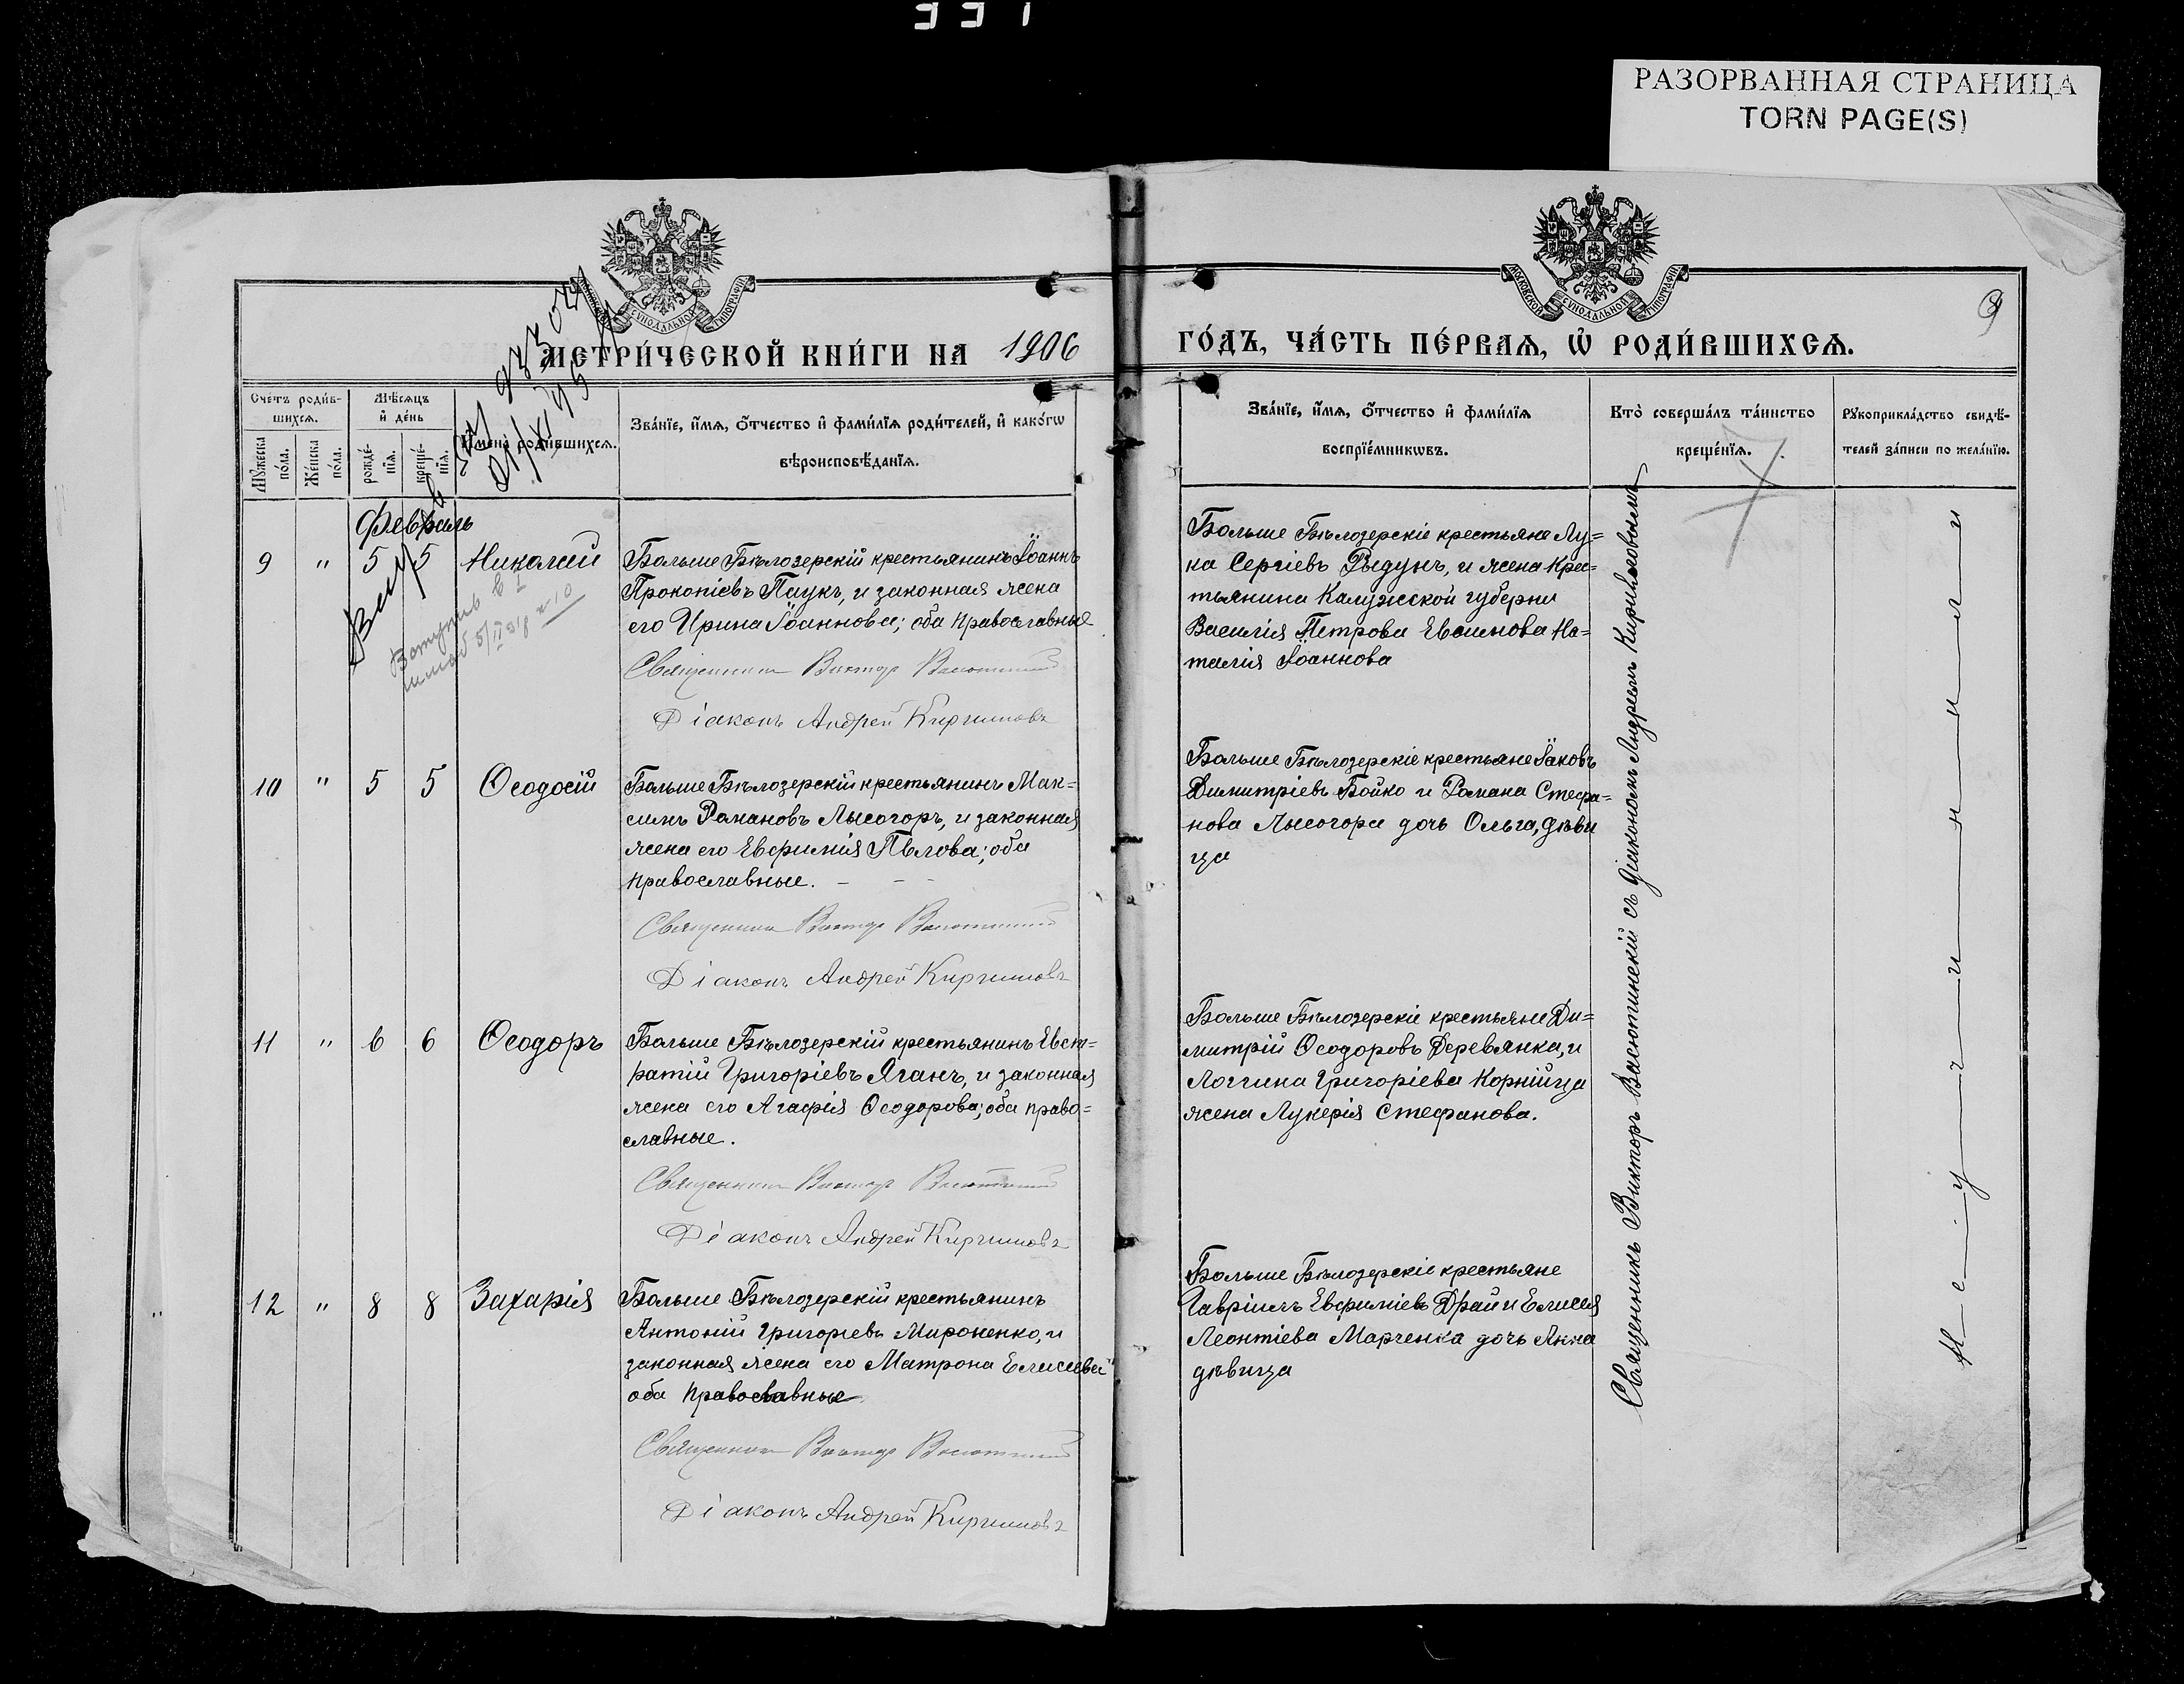 331
РАЗОРВАННАЯ СТРАНИЦА
TORN PAGE(S)
МОСКОВСКОЙ СѴНОДАЛЬНОЙ ТИПОГРАФІИ
9
МЕТРИ́ЧЕСКОЙ КНИ́ГИ НА 1906
ГО́ДЪ, ЧА́СТЬ ПЕ́РВАЯ, Ѡ҆ РОДИ́ВШИХСЯ.
Сче́тъ роди́в-
шихся.
Мѣ́сяцъ
и҆ де́нь
Мꙋ́жеска
по́ла.
Же́нска
по́ла.
рожде́-
нїя.
креще́-
нїя.
Имена̀ роди́вшихся.
Зва́нїе, и҆́мя, ѻ҆́тчество и҆ фами́лїя роди́телей, и҆ како́гѡ
вѣроисповѣ́данїя.
Зва́нїе, и҆́мя, ѻ҆́тчество и҆ фами́лїя
воспрїе́мникѡвъ.
Кто̀ соверша́лъ та́инство
креще́нїя.
Рꙋкоприкла́дство свидѣ́-
телей за́писи по жела́нїю.
7
Февраль
9 " 5 5 Николай
Больше Бѣлозерскій крестьянинъ Іоаннъ
Прокопіевъ Паукъ, и законная жена
его Ирина Іоаннова; оба православные
Священникъ Викторъ
Діаконъ Андрей Кирилловъ
Больше Бѣлозерскіе крестьяне Лу=
ка Сергіевъ Рыдунъ, и жена крес=
тьянина Калужской губерни
Василія Петрова Евсинова На=
талія Іоаннова
10 " 5 5 Ѳеодосій
Больше Бѣлозерскій крестьянинъ Мак=
симъ Романовъ Лысогоръ, и законная
жена его Евфимія Павлова; оба
православные. – – –
Священникъ Викторъ
Діаконъ Андрей Кирилловъ
Больше Бѣлозерскіе крестьяне Іаковъ
Димитріевъ Бойко и Романа Стефа=
нова Лысогора дочь Ольга, дѣви
ца
11 " 6 6 Ѳеодоръ
Больше Бѣлозерскій крестьянинъ Евст=
ратій Григоріевъ Яганъ, и законная
жена его Агафія Ѳеодорова; оба право=
славные.
Священникъ Викторъ
Діаконъ Андрей Кирилловъ
Больше Бѣлозерскіе крестьяне Ди=
митрій Ѳеодоровъ Деревянка, и
Логгина Григоріева Корнійца
жена Лукерія Стефанова.
12 " 8 8 Захарія
Больше Бѣлозерскій крестьянинъ
Антоній Григоріевъ Мироненко, и
законная жена его Матрона Елисеева
оба православные
Священникъ Викторъ
Діаконъ Андрей Кирилловъ
Больше Бѣлозерскіе крестьяне
Гавріилъ Евфиміевъ Драй и Елисея
Леонтіева Марченка дочь Анна
дѣвица
Священникъ Викторъ съ діакономъ Андреемъ Кирилловымъ
Не учинили